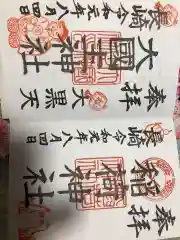 奉拝
大國主神社
大黒天
長崎 令和元年八月四日
奉拝
稲荷神社
長崎 令和元年八月四日